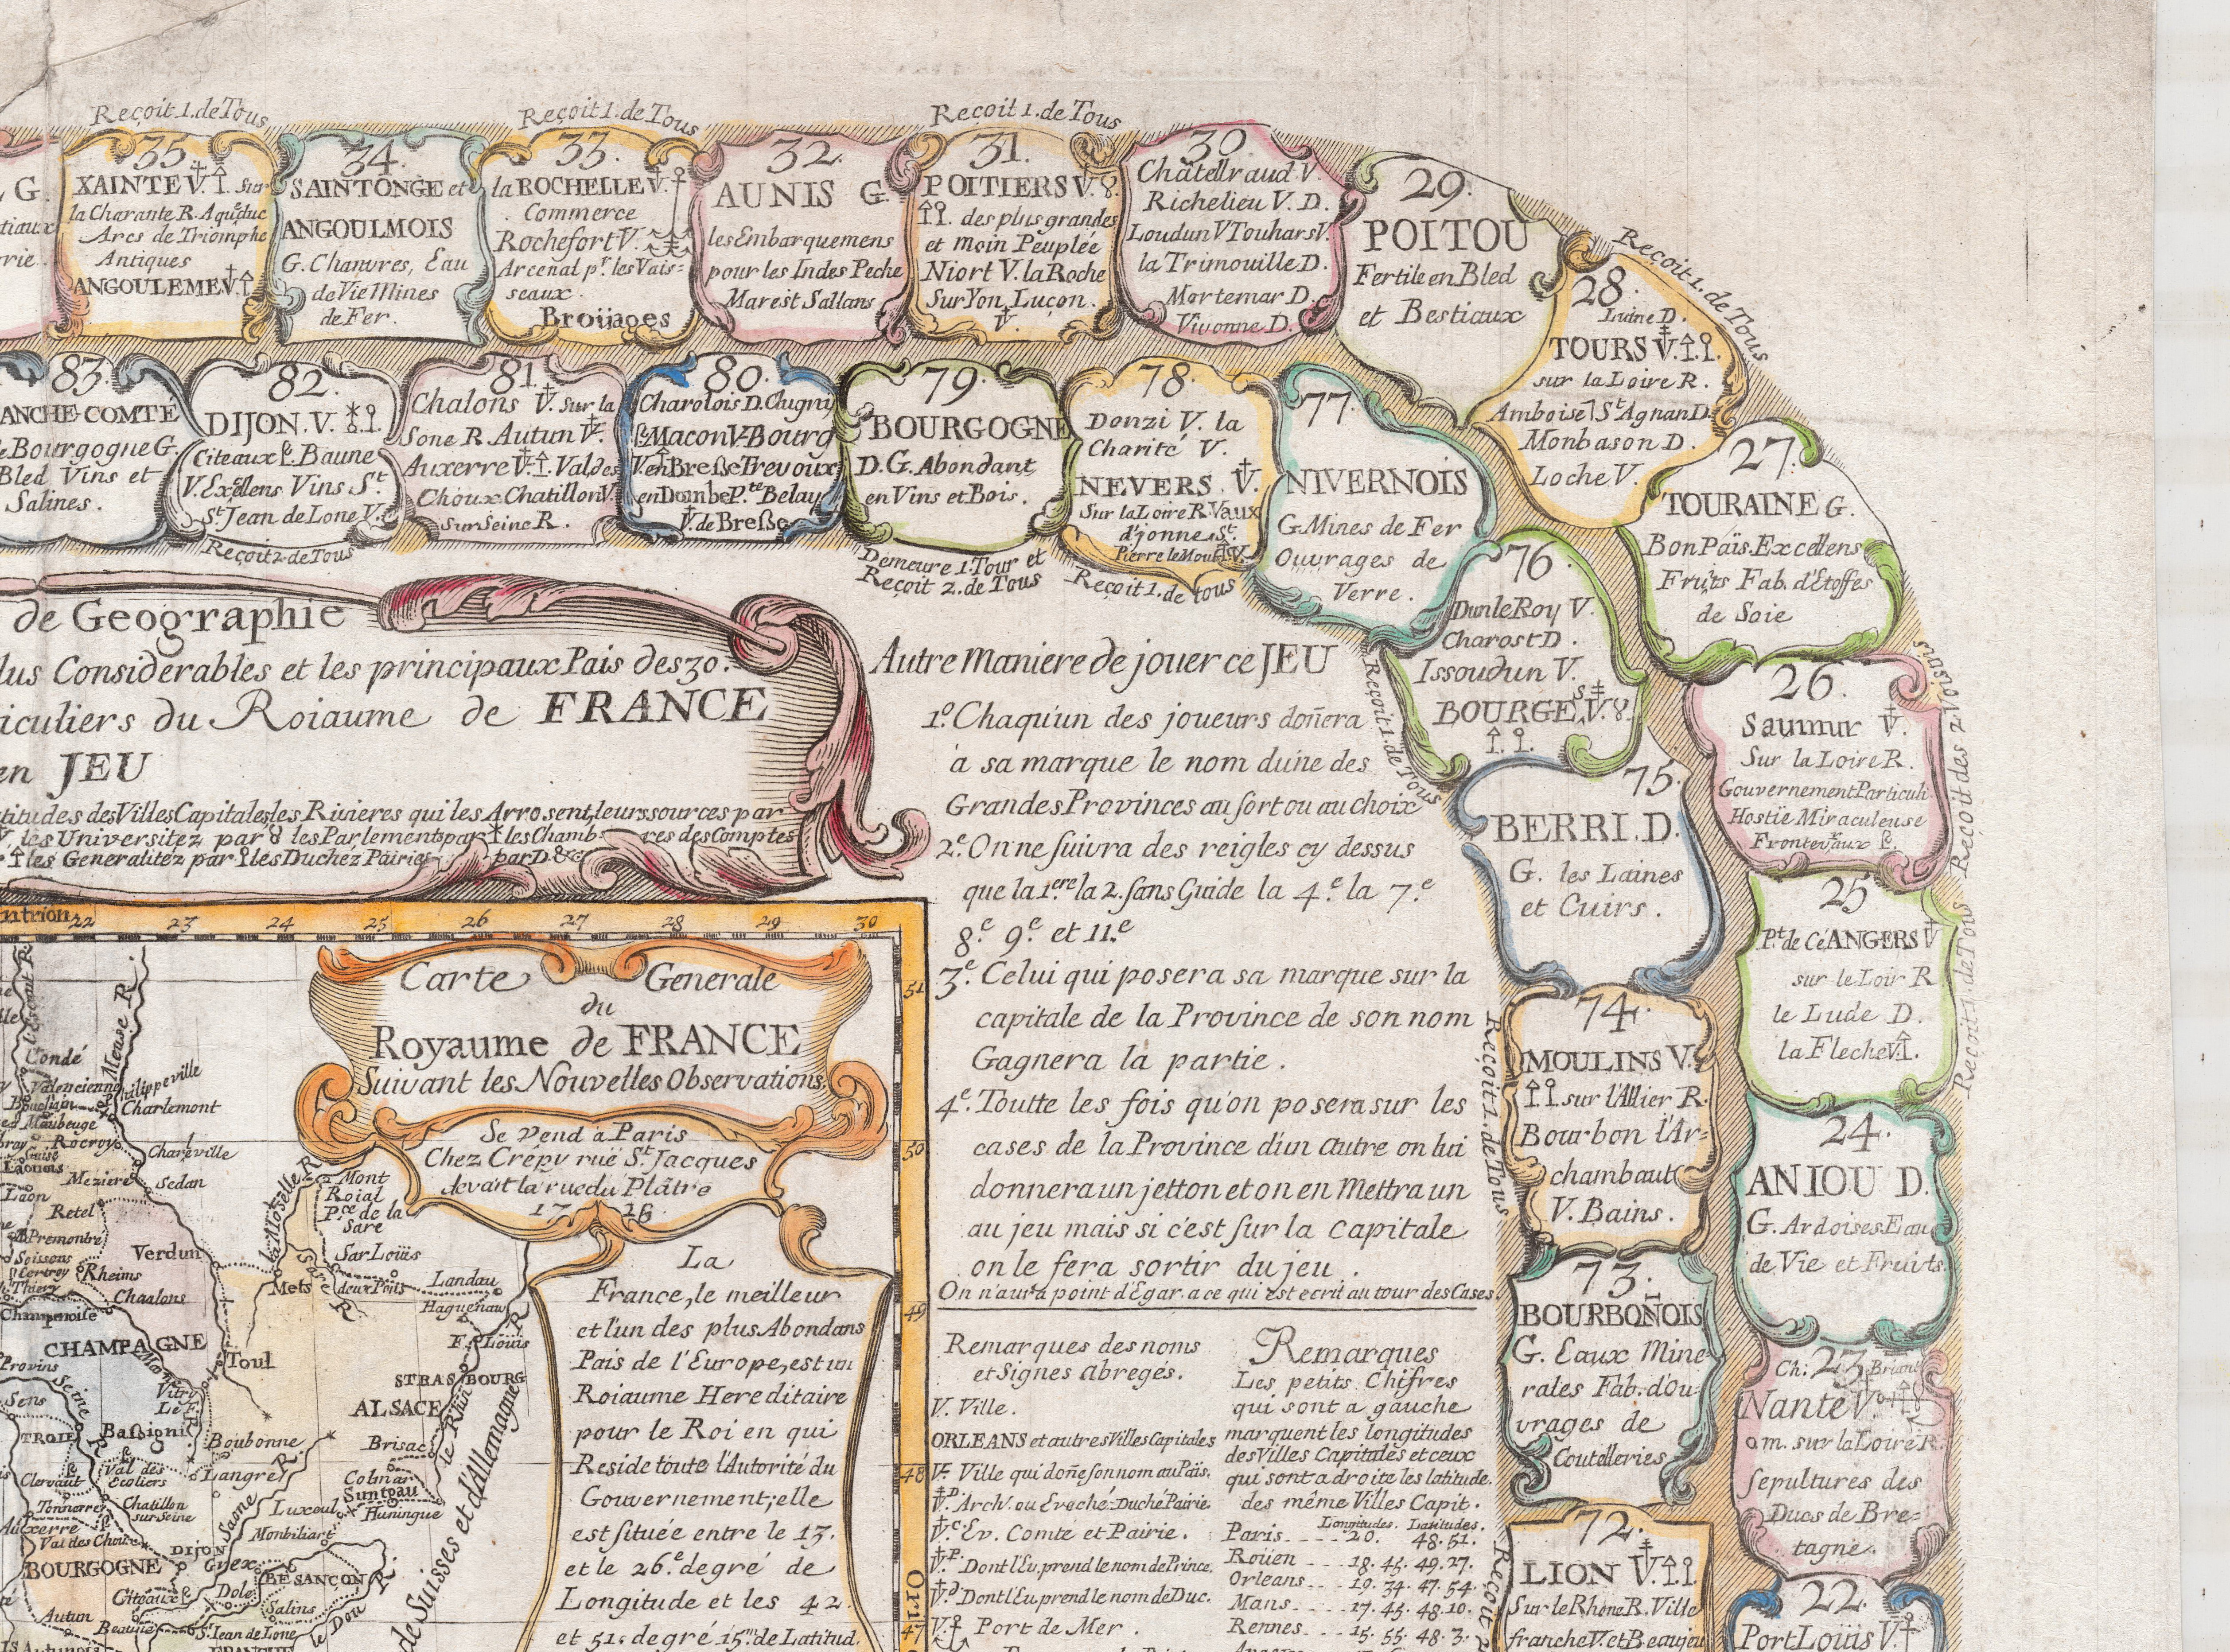 Reçoit 1. de Tous
35.
XAINTE V. Sur
la Charante R. Aqueduc
Arcs de Triomphe
Antiques
ANGOULEME V.
34.
SAINTONGE et
ANGOULMOIS
G. Chanvres, Eau
de Vie Mines
de Fer.
Reçoit 1. de Tous
33.
la ROCHELLE V.
Commerce
Rochefort V.
Arcenal pr. les Vais=
seaux.
Broüages
32.
AUNIS G.
les Embarquemens
pour les Indes Peche
Marest Sallans
Reçoit 1. de Tous
31.
POITIERS V. 8.
des plus grandes
et moin Peuplée
Niort V. la Roche
Sur Yon, Luçon.
V.
30.
Châtellraud V.
Richelieu V. D.
Loudun V Touhars V.
la Trimouille D.
Mortemar D.
Vivonne D.
29.
POITOU
Fertile en Bled
et Bestiaux
Reçoit 1. de Tous
28.
Luine D.
TOURS V.
sur la Loire R.
Amboise St Agnan D.
Monbason D.
Loche V.
27.
TOURAINE G.
Bon Païs. Excellens
Fruits Fab. d'Etoffes
de Soie
26.
Saumur V.
Sur la Loire R.
Gouvernement Particuli
Hostie Miraculeuse
Frontevaux
Reçoit des 2 Voisins
25
Pt. de Cé ANGERS V
sur le Loir R
le Lude D.
la Fleche V.
Reçoit 1. de Tous
24.
ANIOU D.
G. Ardoises Eau
de Vie et Fruits.
Ch: 23. Briant
Nante V.
am. sur la Loire R.
sepultures des
Ducs de Bre=
tagne.
22.
Port Loüis V.
83.
ANCHE-COMTÉ
Bourgogne G.
Bled Vins et
Salines.
82.
DIJON. V.
Citeaux Baune
V. Exellens Vins St.
St. Jean de Lone V.
Reçoit 2 de Tous
81.
Chalons V. Sur la
Sone R. Autun V.
Auxerre V. Val des
Choux Chatillon V.
Sur Seine R.
80.
Charolois D. Clugny
Macon V. Bourg
V. en Breße Trevoux
en Dombe P.té Belay
V. de Breße
79.
BOURGOGNE
D. G. Abondant
en Vins et Bois.
Demeure 1. Tour et
Reçoit 2. de Tous
78.
Donzi V. la
Charité V.
NEVERS. V.
Sur la Loire R. Vaux
d'jonne, St.
Pierre le Mout. V.
Reçoit 1. de tous
77.
NIVERNOIS
G. Mines de Fer
Ouvrages de
Verre.
76.
Dun le Roy V.
Charost D.
Issoudun V.
BOURGES V. 8.
Reçoit 1. de Tous
75.
BERRI. D.
G. les Laines
et Cuirs.
74.
MOULINS V.
sur l'Allier R.
Bourbon l'Ar=
chambaut
V. Bains.
Reçoit 1. de Tous
73.
BOURBONOIS
G. Eaux Mine=
rales Fab. d'Ou=
vrages de
Coutelleries
72.
LION V.
Sur le Rhone R. Ville
franche V. et Beaujeu
Reçoit
de Geographie
lus Considerables et les principaux Pais des 30.
iculiers du Roiaume de FRANCE
en JEU
titudes des Villes Capitales, les Rivieres qui les Arrosent, leurs sources par
V. les Universitez par 8 les Parlements par les Chamb res des Comptes
les Generalitez par les Duchez Pairies par D. &c
Autre Maniere de jouer ce JEU
1º. Chaqu'un des joueurs donera
à sa marque le nom dune des
Grandes Provinces au sort ou au choix
2e. On ne suivra des reigles cy dessus
que la 1ere la 2. sans Guide la 4.e la 7.e
8.e 9.e et 11.e
3e. Celui qui posera sa marque sur la
capitale de la Province de son nom
Gagnera la partie.
4e. Toutte les fois qu'on posera sur les
cases de la Province d'un autre on lui
donnera un jetton et on en Mettra un
au jeu mais si c'est sur la Capitale
on le fera sortir du jeu.
On n'aura point d'Egar. a ce qui est ecrit au tour des Cases.
Remarques des noms
et Signes abregés.
V. Ville.
ORLEANS et autres Villes Capitales
V. Ville qui done son nom au Païs.
V. Arch. ou Eveché Duché Pairie
V. Ev. Comté et Pairie.
V. Dont l'Ev. prend le nom de Prince.
V. Dont l'Ev. prend le nom de Duc.
V. Port de Mer.
Remarques
Les petits Chifres
qui sont a gauche
marquent les longitudes
des Villes Capitales et ceux
qui sont a droite les latitude.
des même Villes Capit.
Longitudes. Latitudes.
Paris 20. 48. 51.
Roüen 18. 45. 49. 27.
Orleans 19. 34. 47. 54.
Mans 17. 45. 48. 10.
Rennes 15. 55. 48. 3.
ntrion
22 23 24 25 26 27 28 29 30
51
50
49
48
47
Ori
Carte Generale
du
Royaume de FRANCE
Suivant les Nouvelles Observations
Se vend à Paris
Chez Crépy ruë St. Jacques
devant la ruë du Plâtre
1728
La
France, le meilleur
et l'un des plus Abondans
Païs de l'Europe, est un
Roiaume Hereditaire
pour le Roi en qui
Reside toute l'Autorité du
Gouvernement; elle
est située entre le 13.
et le 26e. degré de
Longitude et les 42.
et 51. degré 15m. de Latitud.
l'Escaut R.
Meuse R.
Condé
Valencienne
Philippeville
Charlemont
Maubeuge
Rocroy
Charleville
Guise
Laonois
Meziere
Sedan
Laon
Retel
Premontré
Soissons
Rheims
Verdun
Chaalons
Champenoise
CHAMPAGNE
Mont
Roial
Pce de la
Sare
la Moselle R.
Sare R.
Sar Loüis
Mets
deux Ponts
Landau
Haguenau
Ft. Loüis
STRASBOURG
ALSACE
le Rhin R.
Toul
Provins
Sens
Seine R.
Vitry
Le F.
TROIE
Baßigni
Bourbonne
Brisac
Colmar
Suntgau
Huningue
Clervaut
Val des
Ecoliers
Langre
Tonnerre
Chatillon
sur Seine
Luxeul
Auxerre
Val des Choux
Saone R.
Monbiliart
DIJON
Gyex
BOURGOGNE
BESANÇON
Citeaux
Dole
Salins
Autun
Beaune
S. Jean de Lone
le Dou R.
de Suisses et d'Allemagne